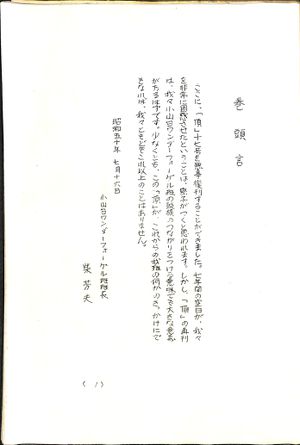 巻頭言
ここに、「頂」十七号を無事復刊することができました。七年間の空白が、我々
を非常に困惑させたということは、息子がつくと思われます。しかし、「頂」の再刊
は、我々小山台ワンダーフォーゲル班の班族のつながりをつける意味で大きな意義
があるはずです。少なくとも、この「頂」が、これからの我班の何かのきっかけにで
きなれば、我々ともどもこれ以上のことはありません。
昭和五十年 七月十六日
小山台ワンダーフォーゲル班班長
柴芳夫
(1)